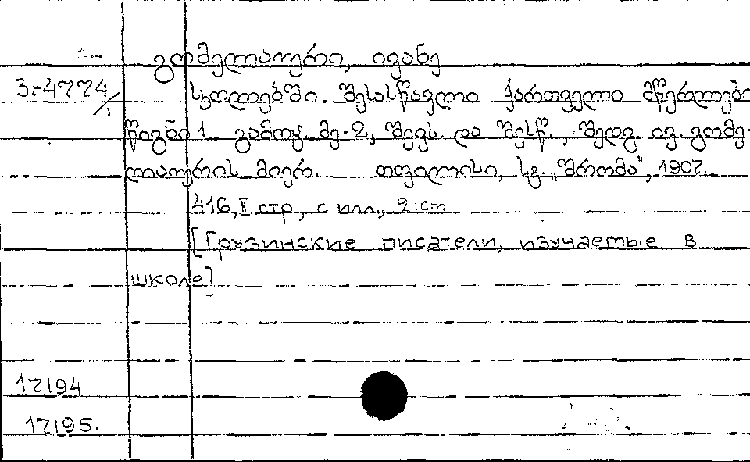 გომელაური, ივანე
3-4774/
სკოლებში. შესასწავლი ქართველი მწერლები
წიგნი 1 გამოც. მე-2, შევს. და შესწ., შედგ. ივ. გომე-
ლაურის მიერ. თფილისი, სტ. "შრომა", 1907.
416, II стр., с илл., 2 cm
[Грузинские писатели, изучаемые в
школе]
17194
17195.